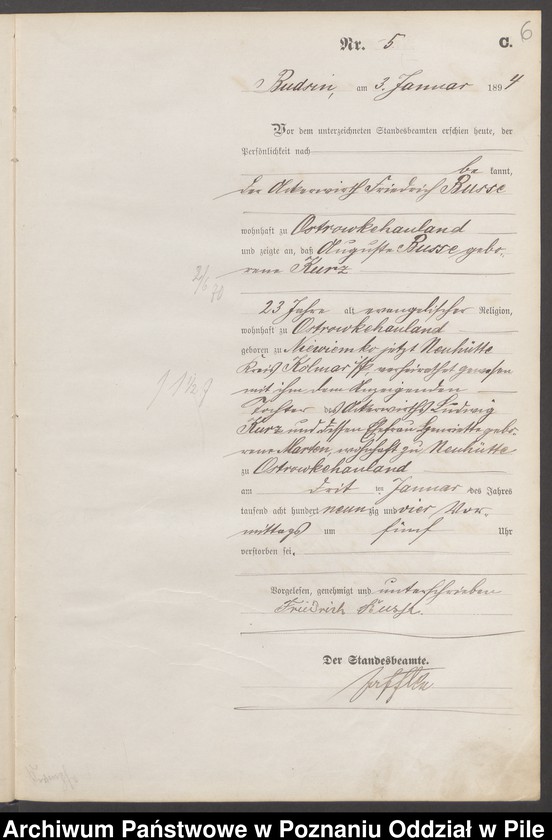 6
Nr. 5 C.
Budsin, am 3. Januar 1894
Vor dem unterzeichneten Standesbeamten erschien heute, der
Persönlichkeit nach
be kannt,
der Ackerwirth Friedrich Busse
wohnhaft zu Ostrowkehauland
und zeigte an, daß Auguste Busse gebo-
rene Kurz
23 Jahre alt, evangelischer Religion,
wohnhaft zu Ostrowkehauland
geboren zu Niewiemko jetzt Neuhütte
Kreis Kolmar i/P, verheirathet gewesen
mit ihm dem Anzeigenden
Tochter des Ackerwirths Ludwig
Kurz und dessen Ehefrau Henriette gebo-
rene Marten, wohnhaft zu Neuhütte
zu Ostrowkehauland
am drit ten Januar des Jahres
tausend acht hundert neun zig und vier Vor-
mittags um fünf Uhr
verstorben sei.
Vorgelesen, genehmigt und unterschrieben
Friedrich
Der Standesbeamte.
Archiwum Państwowe w Poznaniu Oddział w Pile